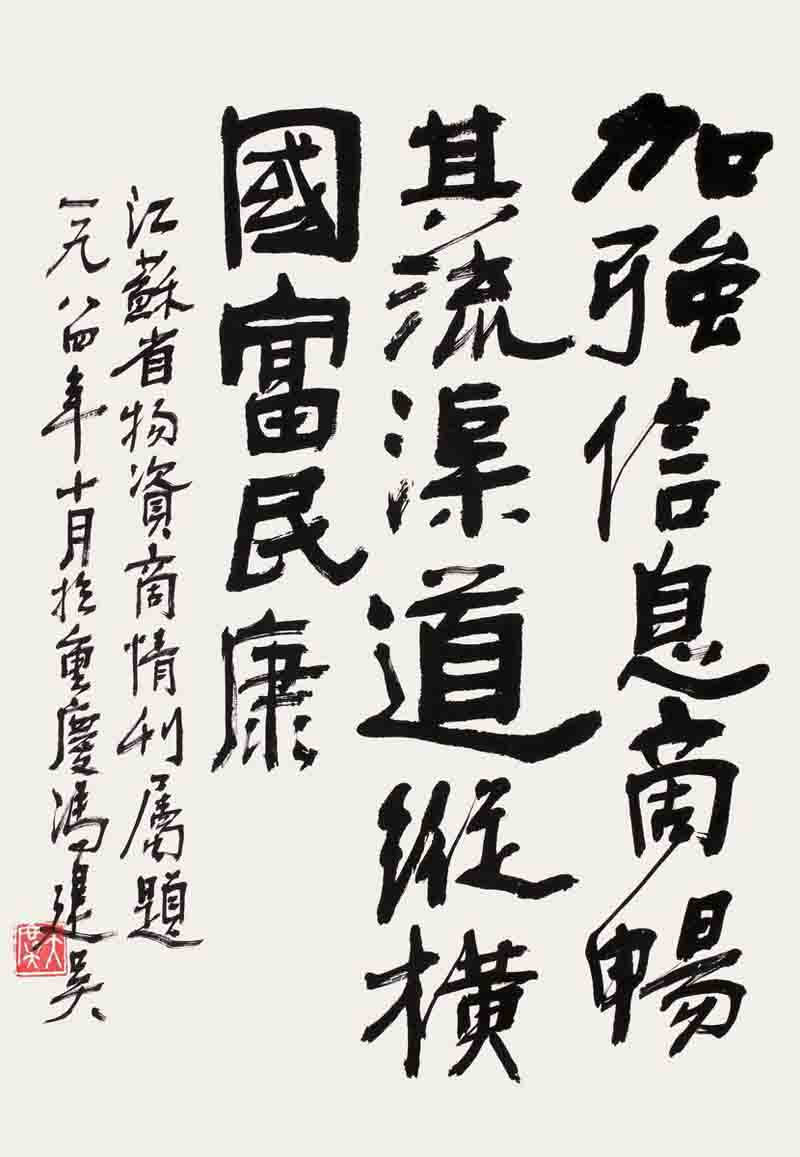 加強信息商暢
其流渠道縱橫
國富民康
江蘇省物資商情刊屬題
一九八四年十月於重慶馮建吳